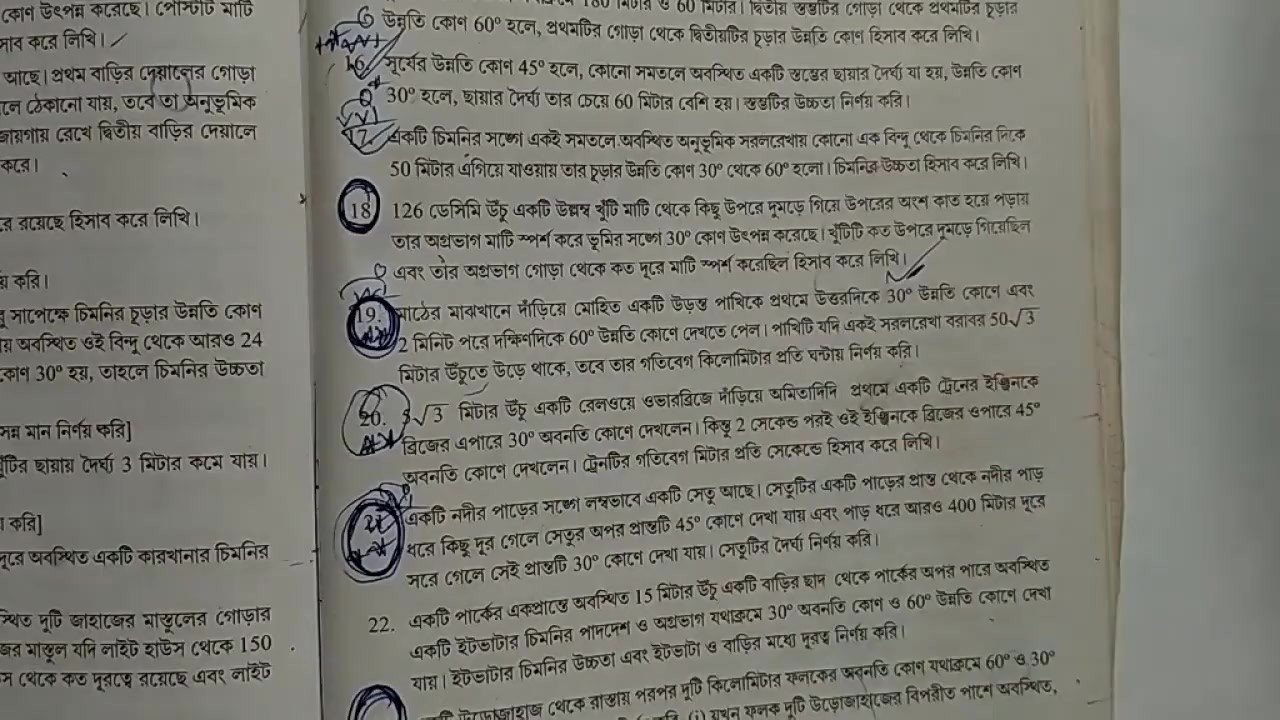 কোণ উৎপন্ন করেছে। পোস্টটি মাটি
হিসাব করে লিখি।
আছে। প্রথম বাড়ির দেয়ালের গোড়া
ঠেকানো যায়, তবে তা অনুভূমিক
জায়গায় রেখে দ্বিতীয় বাড়ির দেয়ালে
করে।
রয়েছে হিসাব করে লিখি।
করি।
সাপেক্ষে চিমনির চূড়ার উন্নতি কোণ
অবস্থিত ওই বিন্দু থেকে আরও 24
কোণ 30° হয়, তাহলে চিমনির উচ্চতা
মান নির্ণয় করি]
খুঁটির ছায়ার দৈর্ঘ্য 3 মিটার কমে যায়।
করি]
দূরে অবস্থিত একটি কারখানার চিমনির
দুটি জাহাজের মাস্তুলের গোড়ার
মাস্তুল যদি লাইট হাউস থেকে 150
থেকে কত দূরত্বে রয়েছে এবং লাইট
180 মিটার ও 60 মিটার। দ্বিতীয় স্তম্ভটির গোড়া থেকে প্রথমটির চূড়ার
উন্নতি কোণ 60° হলে, প্রথমটির গোড়া থেকে দ্বিতীয়টির চূড়ার উন্নতি কোণ হিসাব করে লিখি।
16. সূর্যের উন্নতি কোণ 45° হলে, কোনো সমতলে অবস্থিত একটি স্তম্ভের ছায়ার দৈর্ঘ্য যা হয়, উন্নতি কোণ
30° হলে, ছায়ার দৈর্ঘ্য তার চেয়ে 60 মিটার বেশি হয়। স্তম্ভটির উচ্চতা নির্ণয় করি।
17. একটি চিমনির সঙ্গে একই সমতলে অবস্থিত অনুভূমিক সরলরেখায় কোনো এক বিন্দু থেকে চিমনির দিকে
50 মিটার এগিয়ে যাওয়ায় তার চূড়ার উন্নতি কোণ 30° থেকে 60° হলো। চিমনির উচ্চতা হিসাব করে লিখি।
18 126 ডেসিমি উঁচু একটি উল্লম্ব খুঁটি মাটি থেকে কিছু উপরে দুমড়ে গিয়ে উপরের অংশ কাত হয়ে পড়ায়
তার অগ্রভাগ মাটি স্পর্শ করে ভূমির সঙ্গে 30° কোণ উৎপন্ন করেছে। খুঁটিটি কত উপরে দুমড়ে গিয়েছিল
এবং তার অগ্রভাগ গোড়া থেকে কত দূরে মাটি স্পর্শ করেছিল হিসাব করে লিখি।
19. মাঠের মাঝখানে দাঁড়িয়ে মোহিত একটি উড়ন্ত পাখিকে প্রথমে উত্তরদিকে 30° উন্নতি কোণে এবং
2 মিনিট পরে দক্ষিণদিকে 60° উন্নতি কোণে দেখতে পেল। পাখিটি যদি একই সরলরেখা বরাবর 50√3
মিটার উঁচুতে উড়ে থাকে, তবে তার গতিবেগ কিলোমিটার প্রতি ঘণ্টায় নির্ণয় করি।
20. 5√3 মিটার উঁচু একটি রেলওয়ে ওভারব্রিজে দাঁড়িয়ে অমিতাদিদি প্রথমে একটি ট্রেনের ইঞ্জিনকে
ব্রিজের এপারে 30° অবনতি কোণে দেখলেন। কিন্তু 2 সেকেন্ড পরই ওই ইঞ্জিনকে ব্রিজের ওপারে 45°
অবনতি কোণে দেখলেন। ট্রেনটির গতিবেগ মিটার প্রতি সেকেন্ডে হিসাব করে লিখি।
21. একটি নদীর পাড়ের সঙ্গে লম্বভাবে একটি সেতু আছে। সেতুটির একটি পাড়ের প্রান্ত থেকে নদীর পাড়
ধরে কিছু দূর গেলে সেতুর অপর প্রান্তটি 45° কোণে দেখা যায় এবং পাড় ধরে আরও 400 মিটার দূরে
সরে গেলে সেই প্রান্তটি 30° কোণে দেখা যায়। সেতুটির দৈর্ঘ্য নির্ণয় করি।
22. একটি পার্কের একপ্রান্তে অবস্থিত 15 মিটার উঁচু একটি বাড়ির ছাদ থেকে পার্কের অপর পারে অবস্থিত
একটি ইটভাটার চিমনির পাদদেশ ও অগ্রভাগ যথাক্রমে 30° অবনতি কোণ ও 60° উন্নতি কোণে দেখা
যায়। ইটভাটার চিমনির উচ্চতা এবং ইটভাটা ও বাড়ির মধ্যে দূরত্ব নির্ণয় করি।
উড়োজাহাজ থেকে রাস্তায় পরপর দুটি কিলোমিটার ফলকের অবনতি কোণ যথাক্রমে 60° ও 30°
(i) যখন ফলক দুটি উড়োজাহাজের বিপরীত পাশে অবস্থিত,